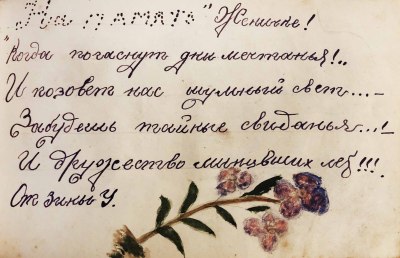 "На память" Женичке!
"Когда погаснут дни мечтанья!..
И позовет нас шумный свет...-
Забудешь тайные свиданья...!-
И дружество минувших лет!!!
От Зины У.